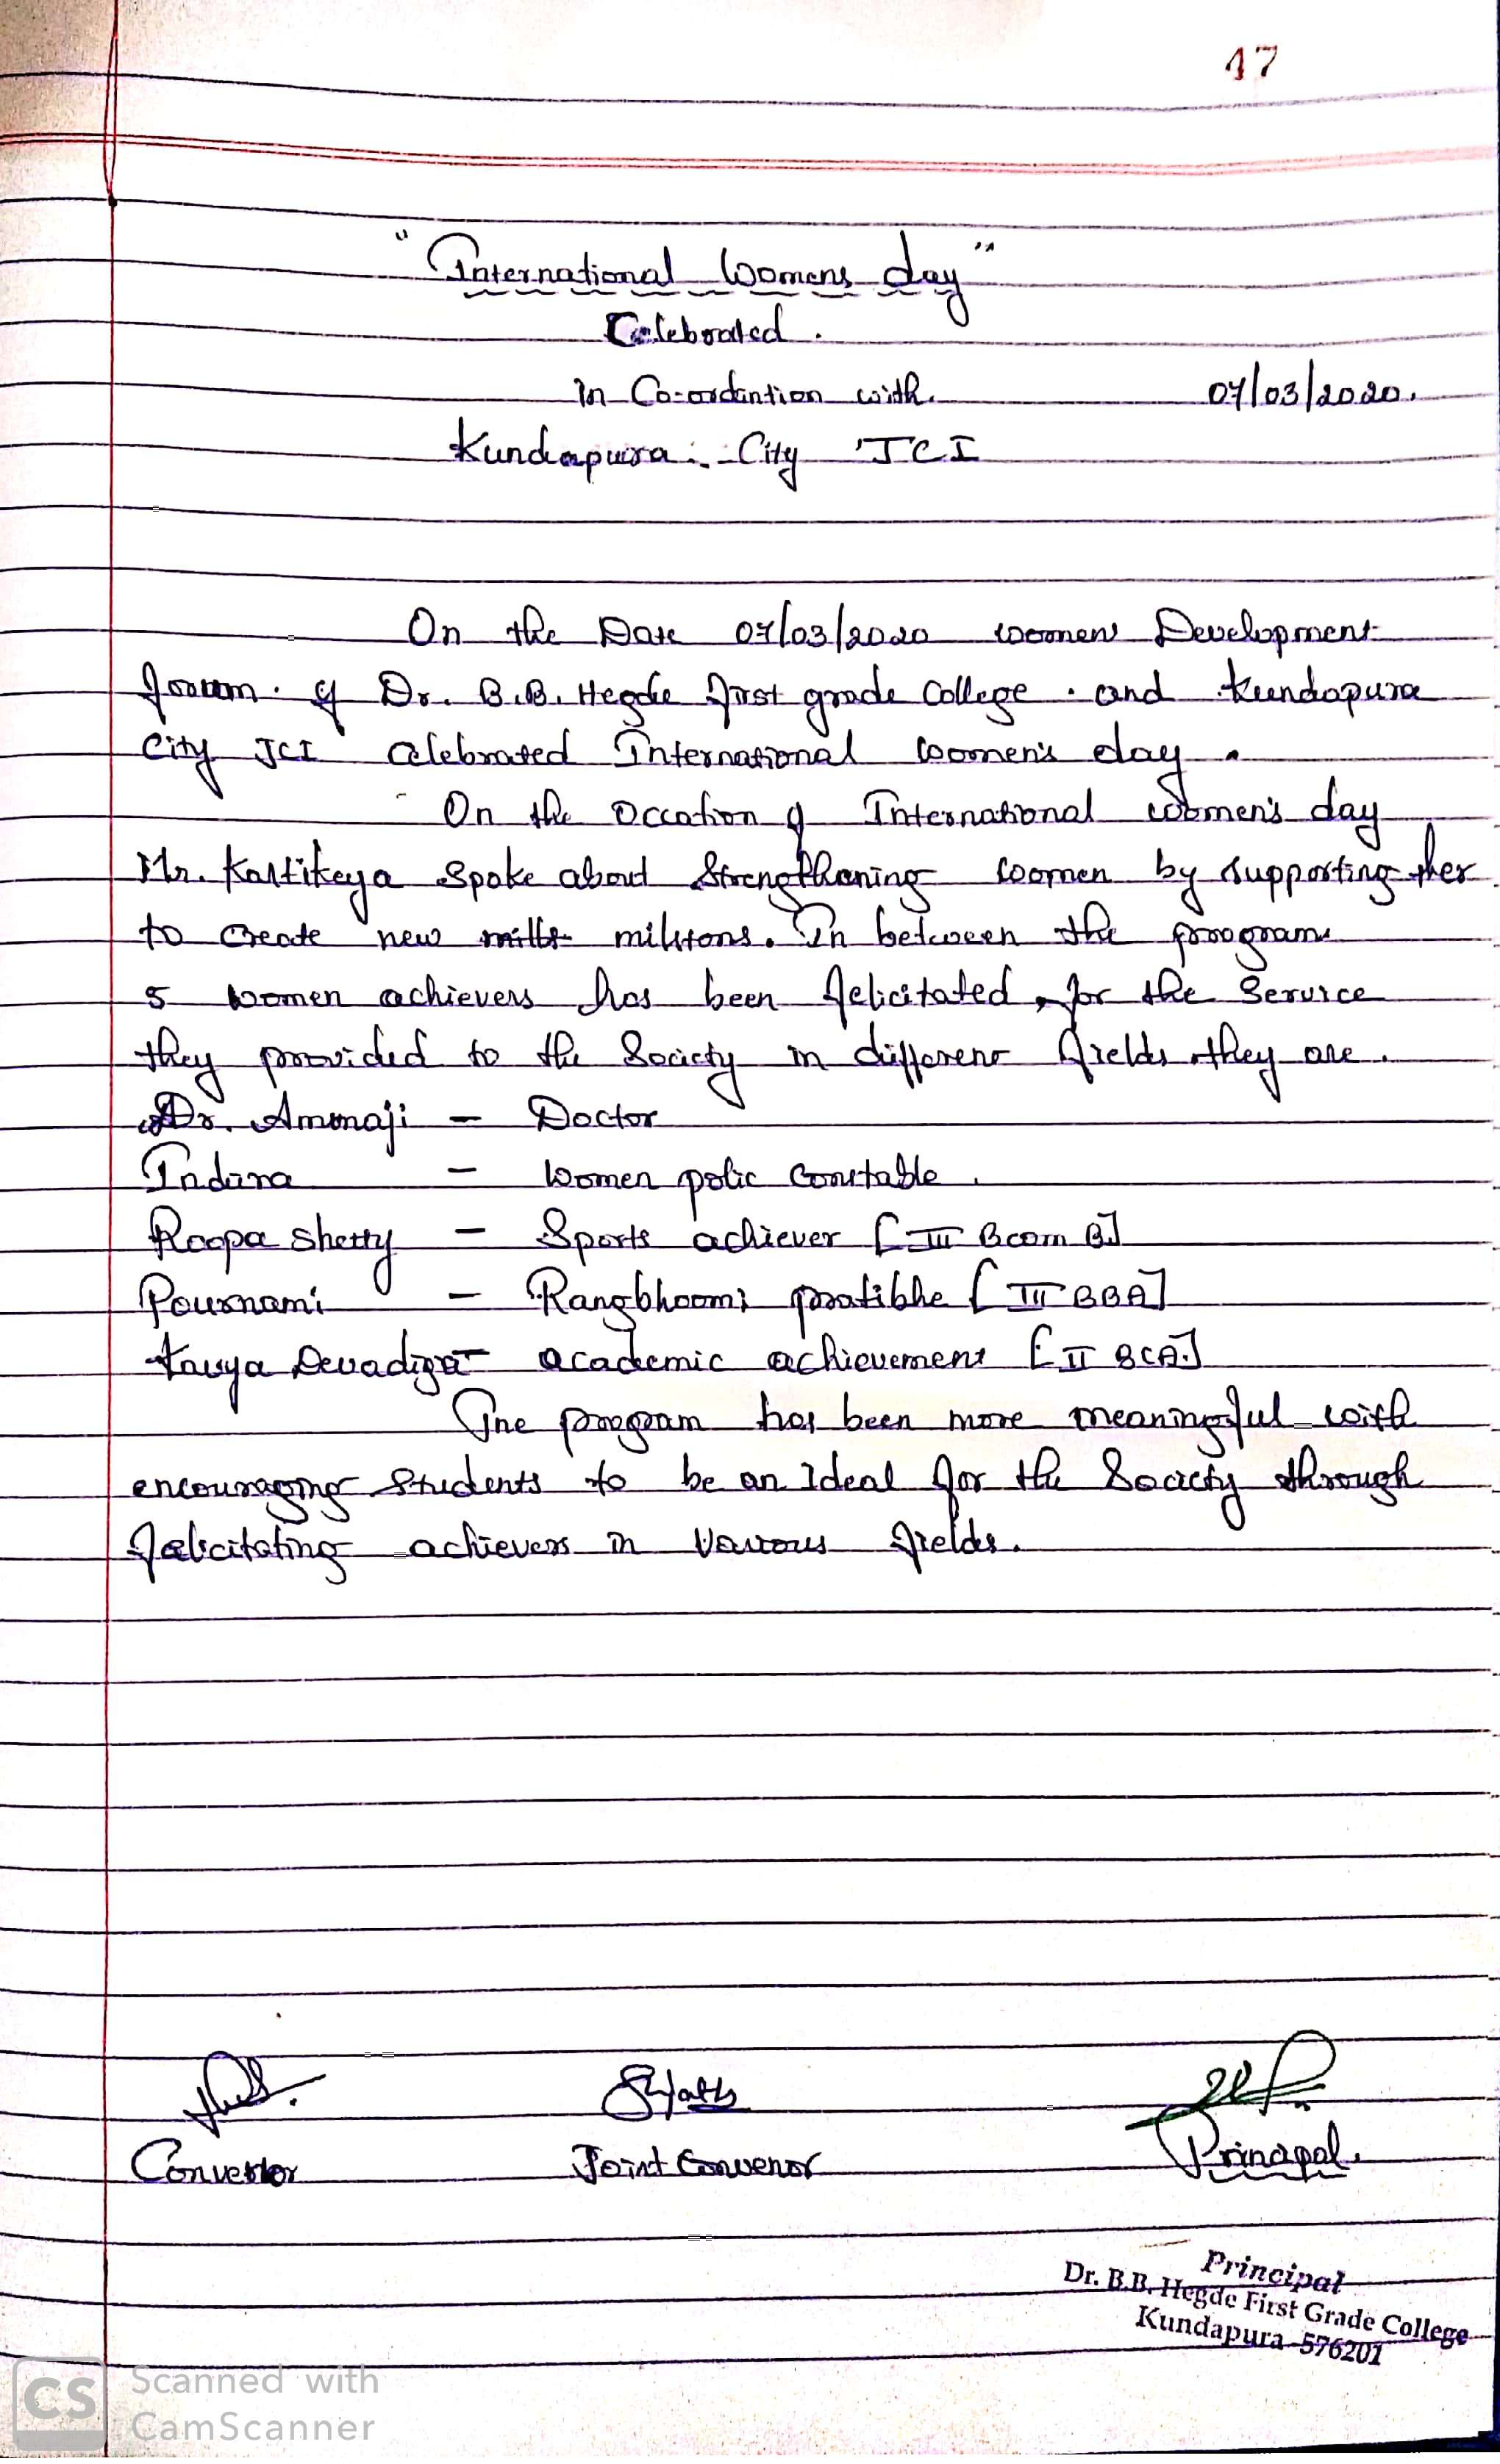 47
"International Womens day"
Celebrated.
in Co-ordintion with. 07/03/2020.
Kundapura City JCI
On the Date 07/03/2020 women Development
forum of Dr. B.B. Hegde first grade College and Kundapura
City JCI celebrated International women's day.
On the Occation of International women's day
Mr. Kartikeya Spoke about Strengthening women by supporting her
to create new milstons. In between the program
5 women achievers has been felicitated, for the Service
they provided to the Society in different fields they are.
Dr. Ammaji - Doctor
Indira - Women polic Constable.
Roopa Shetty - Sports achiever [III Bcom B]
Pournami - Rangbhoomi pratibhe [III BBA]
Kavya Devadiga - academic achievement [II BCA]
The program has been more meaningful with
encouraging Students to be an Ideal for the Society through
felicitating achievers in Various fields.
Convenor Joint Convenor Principal.
Principal
Dr. B.B. Hegde First Grade College
Kundapura-576201
CS Scanned with
CamScanner